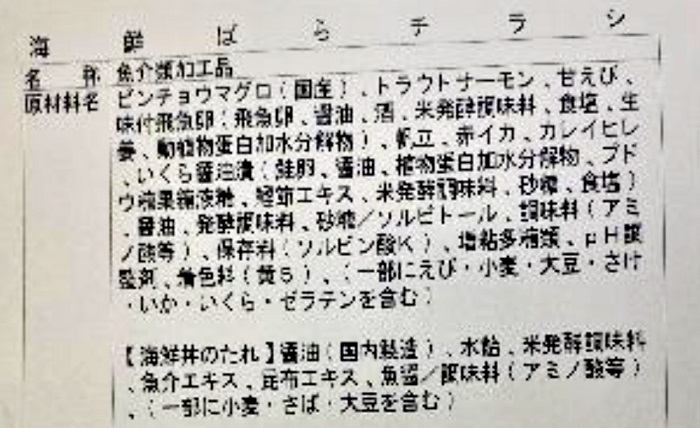 海鮮ばらチラシ
名称 魚介類加工品
原材料名 ビンチョウマグロ(国産)、トラウトサーモン、甘えび、
味付飛魚卵(飛魚卵、醤油、酒、米発酵調味料、食塩、生
姜、動植物蛋白加水分解物)、帆立、赤イカ、カレイヒレ
、いくら醤油漬(鮭卵、醤油、植物蛋白加水分解物、ブド
ウ糖果糖液糖、鰹節エキス、米発酵調味料、砂糖、食塩)
、醤油、発酵調味料、砂糖/ソルビトール、調味料(アミ
ノ酸等)、保存料(ソルビン酸K)、増粘多糖類、pH調
整剤、着色料(黄5)、(一部にえび・小麦・大豆・さけ
・いか・いくら・ゼラチンを含む)
【海鮮丼のたれ】醤油(国内製造)、水飴、米発酵調味料
、魚介エキス、昆布エキス、魚醤/調味料(アミノ酸等)
、(一部に小麦・さば・大豆を含む)